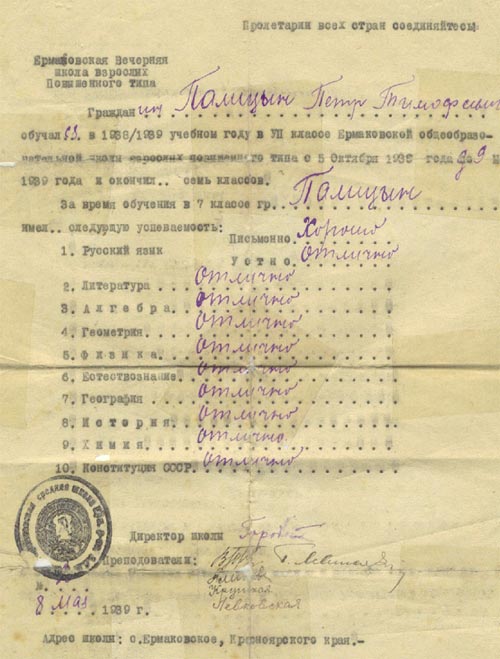 Пролетарии всех стран соединяйтесь
Ермаковская Вечерняя
школа взрослых
Повышенного типа
Гражданин Полицын Петр Тимофеевич
обучался в 1938/1939 учебном году в УП классе Ермаковской общеобразо-
вательной школы взрослых повышенного типа с 5 Октября 1938 года до 9 М
1939 года и окончил.. семь классов.
За время обучения в 7 классе гр. Полицын
имел.. следующую успеваемость:
1. Русский язык Письменно Хорошо
Устно. Отлично
2. Литература Отлично
3. Алгебра. Отлично
4. Геометрия. Отлично
5. Физика. Отлично
6. Естествознание. Отлично
7. География Отлично
8. История. Отлично
9. Химия Отлично
10. Конституция СССР. Отлично
Директор школы
Преподователи:
Левковская
№
8 Мая 1939 г.
Адрес школы: с.Ермаковское, Красноярского края.-